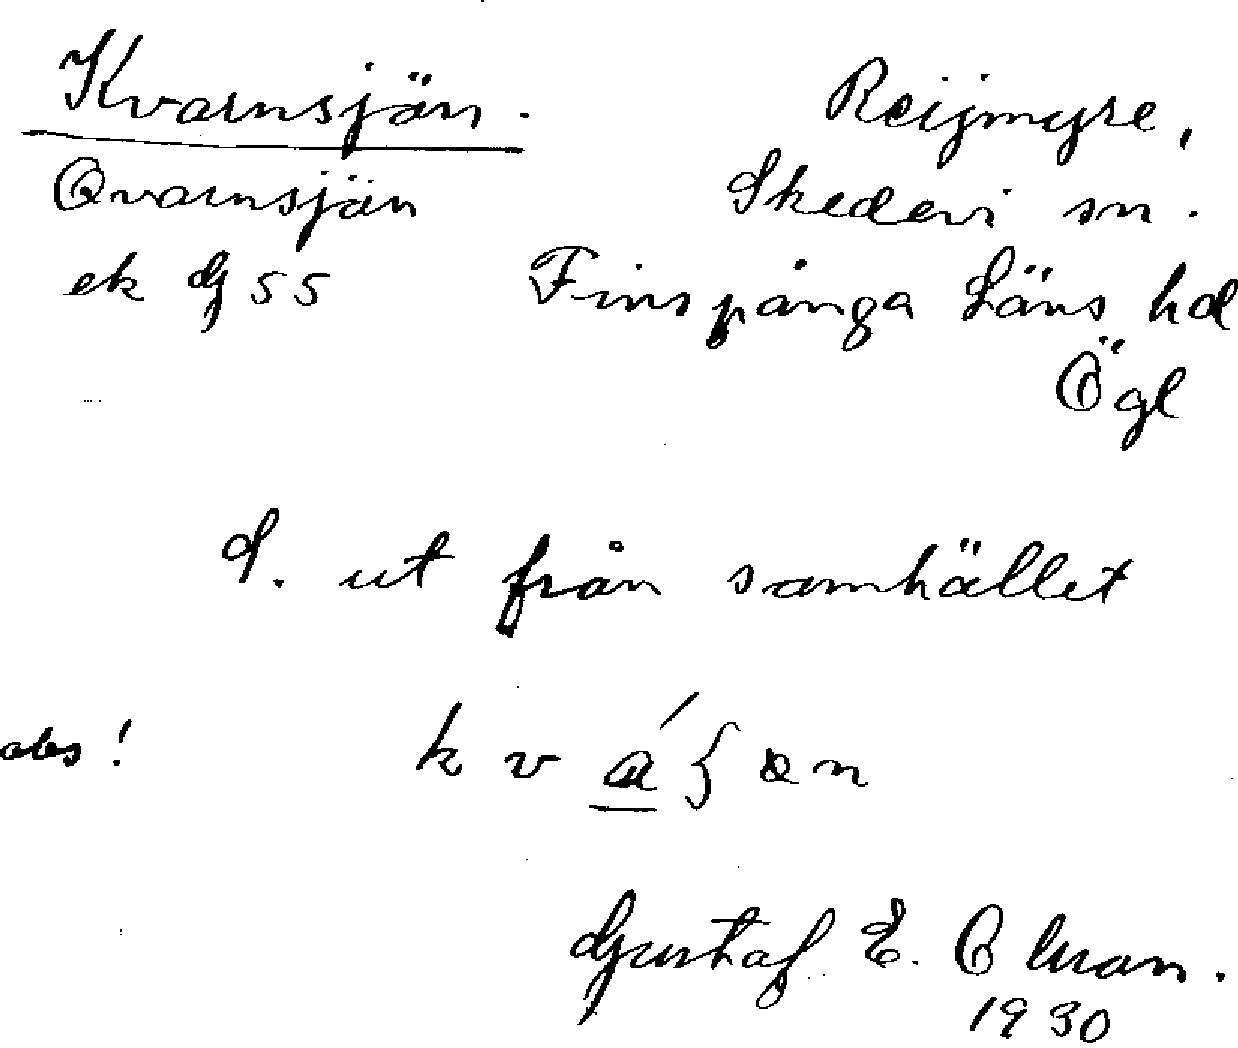 Kvarnsjön.
Qvarnsjön
ek G 55
Reijmyre,
Skedevi sn.
Finspånga Läns hd
Ögl
S. ut från samhället
obs! k v a ́ { ɶ n
Gustaf E. Oluan.
1930